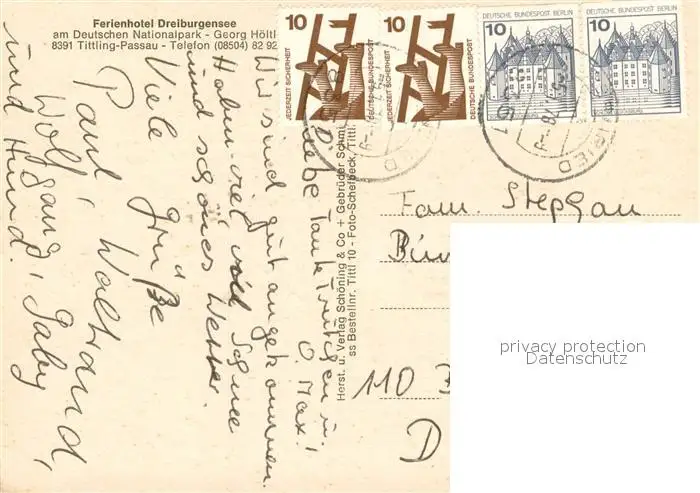 Ferienhotel Dreiburgensee
am Deutschen Nationalpark - Georg Höltl
8391 Tittling-Passau - Telefon (08504) 82 92
Liebe Tante Trudchen u.
O. Max!
Wir sind gut angekommen.
Haben viel, viel Schnee
und schönes Wetter.
Viele Grüße
Paul, Waltraud,
Wolfgang, Gaby
und Hund.
Herst. u. Verlag Schöning & Co + Gebrüder Schmi
ss Bestellnr. Tittl 10 - Foto-Scheibeck, Tittl.
10
JEDERZEIT SICHERHEIT
DEUTSCHE BUNDESPOST
10
JEDERZEIT SICHERHEIT
DEUTSCHE BUNDESPOST
DEUTSCHE BUNDESPOST BERLIN
10
DEUTSCHE BUNDESPOST BERLIN
10
Fam. Stephan
110
D
privacy protection
Datenschutz